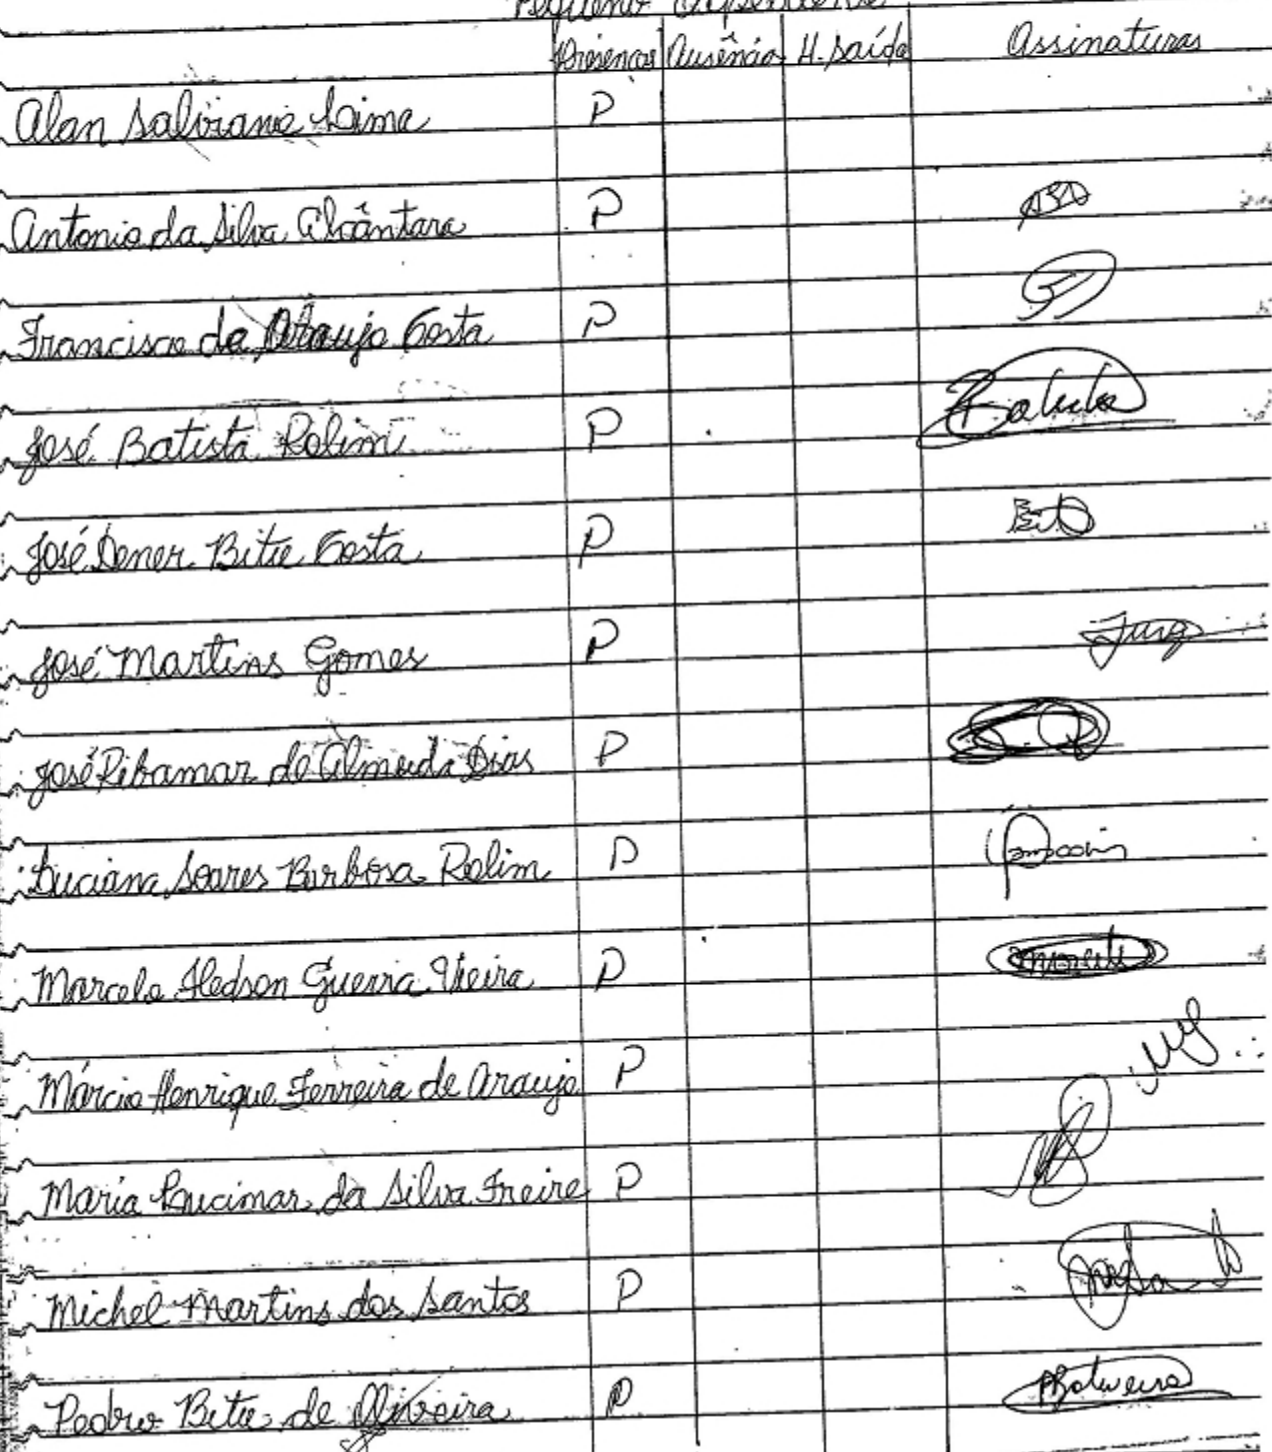 Pequeno Expediente
Presença Ausência H. saída Assinaturas
Alan Salviano Lima P
Antonio da Silva Alcântara P
Francisco de Araujo Costa P
José Batista Rolim P Batista
José Dener Bitu Costa P
José Martins Gomes P
José Ribamar de Almeida Dias P
Luciana Soares Barbosa Rolim P
Marcelo Hedson Guerra Vieira P
Márcio Henrique Ferreira de Araujo P
Maria Lucimar da Silva Freire P
Michel Martins dos Santos P
Pedro Bitu de Oliveira P